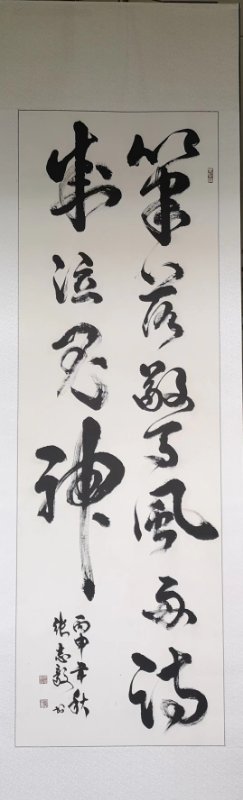 筆落驚風雨詩
成泣鬼神
丙申年秋
張志毅書